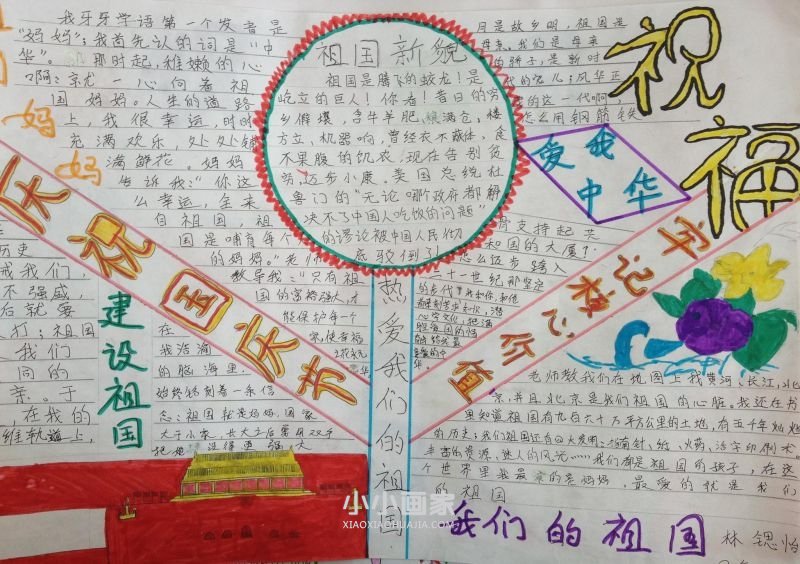 我牙牙学语第一个发音是
"妈妈";我首先认的词是"中
华"。那时起,稚嫩的心
啊;就一心向着祖
国妈妈。人生的道路
上,我很幸运,时时
充满欢乐,处处铺
满鲜花。妈妈
告诉我:"你这
么幸运,全来
自祖国,祖
国是哺育每个
的妈妈。"老师
教导我:"只有祖
国的富裕强大,才
能保护每一个
妈
妈
祖国新貌
祖国是腾飞的蛟龙!是
屹立的巨人!你看!昔日的穷
乡僻壤,多牛羊肥,绿满仓,楼
方立,机器响,曾经衣不蔽体,食
不果腹的饥农,现在告别贫
穷,迈步小康。美国总统杜
鲁门的"无论哪个政府都解
决不了中国人吃饭的问题"
的谬论被中国人民彻
底驳倒了!
月是故乡明,祖国是
母亲。我们是母亲
的孩子,是新时
代的宠儿;风华正
的这一代啊,
怎么用钢筋铁
骨支持起共
和国的大厦?
怎么迈步踏入
二十一世纪那坚定
祝
福
爱我
中华
庆祝国庆节
牢记核心价值
热爱我们的祖国
建设祖国
历史
我们,
不强盛,
后就要
打;祖国
我们
同的
亲。于
,在我的
在
我浩瀚
的脑海里,
始终铭刻着一条信
念:祖国就是妈妈,国家
大于小家,长大了后要用双手
把她
老师教我们在地图上找黄河、长江,北
京,并且北京是我们祖国的心脏。我还在书
里知道祖国有九百六十万平方公里的土地,有五千年灿烂
的历史;我们祖国还有四大发明:指南针、纸、火药、活字印刷术
丰富的资源、迷人的风光……我们都是祖国的孩子,在这
个世界里我最亲的是妈妈,最爱的就是我们
的祖国
我们的祖国
林锶怡
小小画家
XIAOXIAOHUAJIA.COM